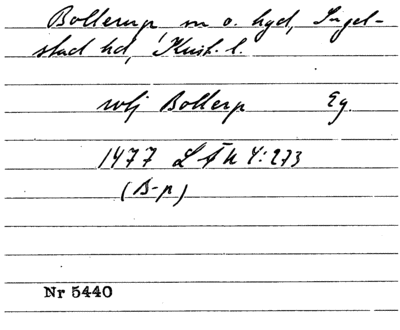 Bollerup m o. hgd, Ingel-
stad hd, Krist. l.
rolj Bollerp Eg.
1477 LÄU 4:273
(B-p)
Nr 5440